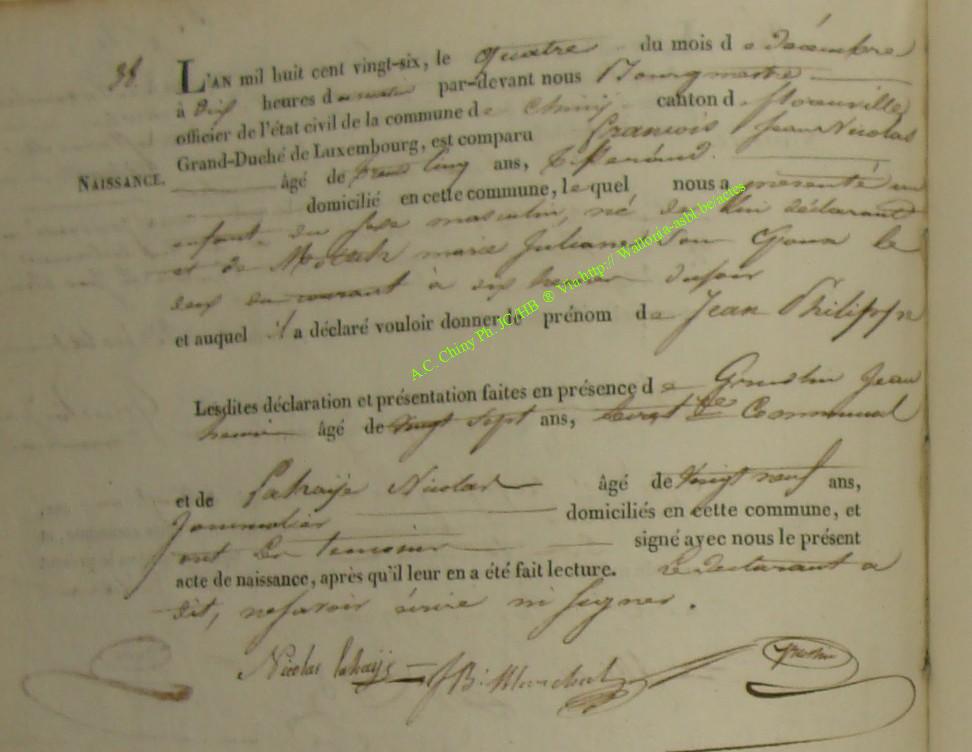 38
L'AN mil huit cent vingt-six, le quatre du mois de décembre
à dix heures du matin par-devant nous Bourgmestre
officier de l'état civil de la commune de Chiny canton de florenville
Grand-Duché de Luxembourg, est comparu François Jean Nicolas
NAISSANCE. âgé de trente cinq ans,
domicilié en cette commune, lequel nous a présenté un
enfant du sexe masculin, né de lui déclarant
et de marie Julianne son épouse le
deux du courant à six heures du soir
et auquel il a déclaré vouloir donner le prénom de Jean Philippe
Lesdites déclaration et présentation faites en présence de Jean
henri âgé de vingt sept ans, Communal
et de Lahaije Nicolas âgé de vingt neuf ans,
Journalier domiciliés en cette commune, et
ont les temoins signé avec nous le présent
acte de naissance, après qu'il leur en a été fait lecture. Le declarant a
dit, ne savoir écrire ni signer.
Nicolas lahaije JB. Marechal
A.C. Chiny Ph. JC/HB ® Via http:// Wallonia-asbl.be/actes